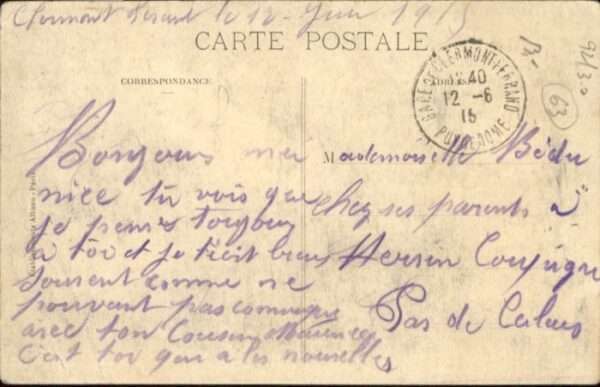 Clermont Ferrand le 12 Juin 1915
CARTE POSTALE
CORRESPONDANCE
ADRESSE
GARE DE CLERMONT-FERRAND
12 40
12 -6
15
PUY-DE-DOME
13-
63
Bonjour ma
nice tu vois que
je penses toujour
a toi et je técit bien
souvent comme ne
pouvant pas
avec ton Cousin Maurice
C'est toi qui a les nouvelles
Mademoiselle Bédu
chez ses parents à
Hersin Coupigny
Pas de Calais